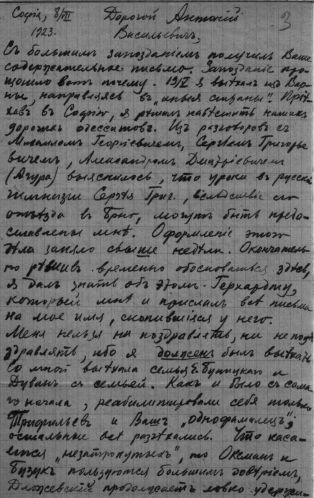 София, 8/VII Дорогой Антоній
1923. Васильевич,
Съ большимъ запозданіемъ получилъ Ваше
содержательное письмо. Запозданіе про-
изошло вотъ почему. 19/V я выѣхалъ изъ Вар-
ны, направляясь въ „иныя страны“. Прiѣ-
хавъ въ Софію, я рѣшилъ навѣстить нашихъ
дорогихъ одесситовъ. Изъ разговоровъ съ
Михаиломъ Георгіевичемъ, Сергѣемъ Григорье-
вичемъ, Александромъ Дмитріевичемъ
(Агура) выяснилось, что уроки въ русской
гимназіи Сергѣя Григ., вслѣдствіе его
отъѣзда въ Брно, могутъ быть предо-
ставлены мнѣ. Оформленіе этого
дѣла заняло свыше недѣли. Окончатель-
но рѣшивъ временно обосноваться здѣсь,
я далъ знать объ этомъ Герхардту,
который мнѣ и прислалъ всѣ письма
на мое имя, скопившіяся у него.
Меня нельзя ни поздравлять, ни не позд-
равлять, ибо я долженъ былъ выѣхать
Со мной выѣхала семья Бутицкаго и
Дуванъ съ семьей. Какъ и было съ сама-
го начала, реабилитировали себя только
Трифильевъ и Вашъ „однофамилецъ“,
остальные всѣ разъѣхались. Что каса-
ется „незатронутыхъ“, то Оксманъ и
Бузукъ пользуются большимъ довѣріемъ,
Дложевскій продолжаетъ ловко удержи-